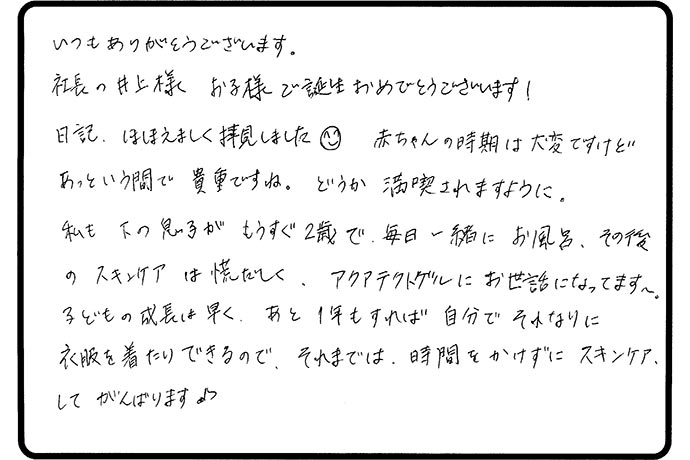 いつもありがとうございます。
社長の井上様 お子様ご誕生おめでとうございます！
日記、ほほえましく拝見しました☺ 赤ちゃんの時期は大変ですけど
あっという間で 貴重ですね。どうか 満喫されますように。
私も 下の息子が もうすぐ2歳で、毎日一緒に お風呂、その後
の スキンケア は慌だしく、アクアテクトゲルに お世話になってます〜。
子どもの成長は早く、あと 1年もすれば 自分で それなりに
衣服を着たりできるので、それまでは、時間をかけずに スキンケア、
して がんばります♪